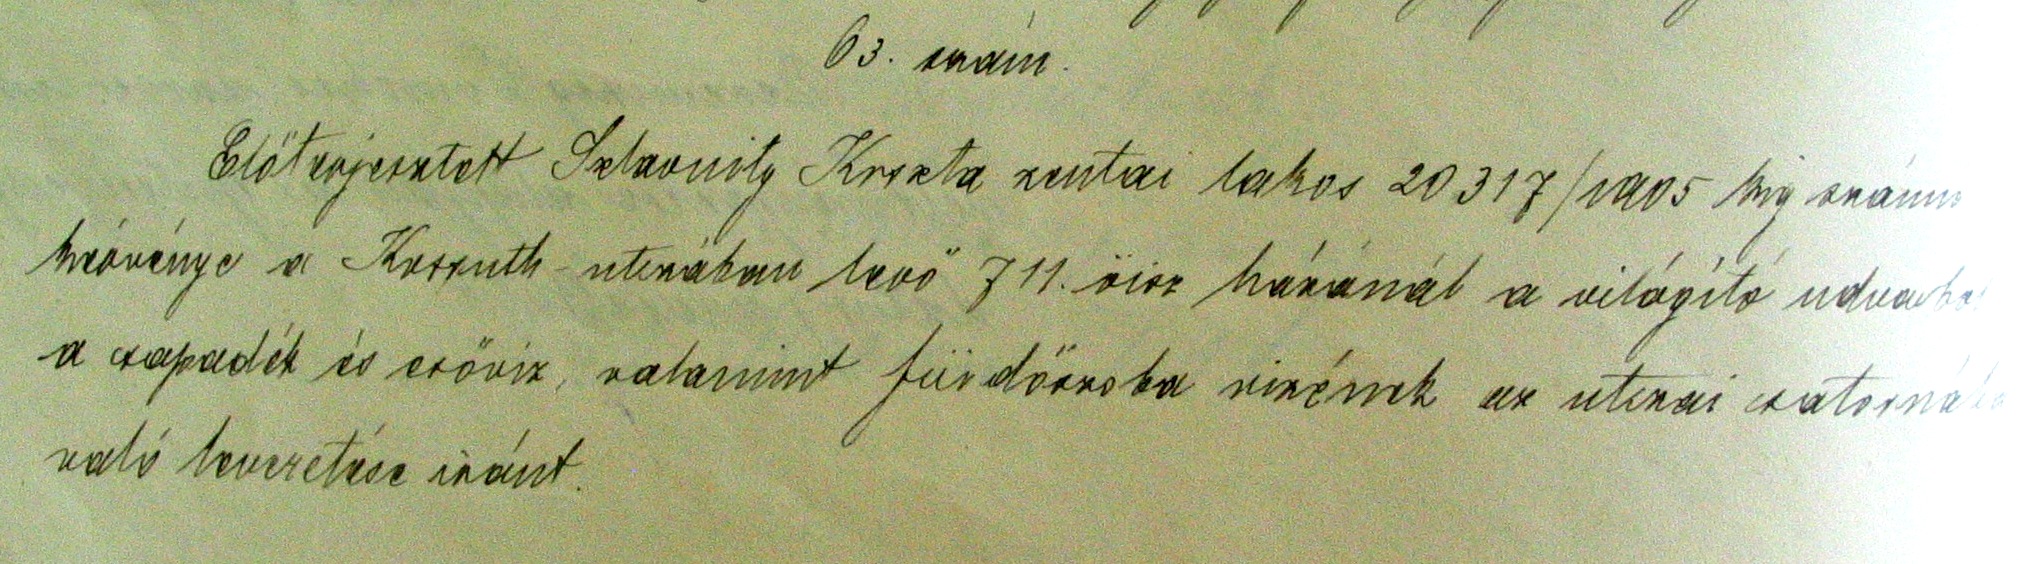 63. szám.
Előterjesztett Szlavnity Krszta zentai lakos 20317/1905 kig számu
kérvénye a Kossuth-utcában levő 711. öisz házánál a világító udvarból
a csapadék és esőviz, valamint fürdőszoba vizének az utcai csatornába
való levezetése iránt.